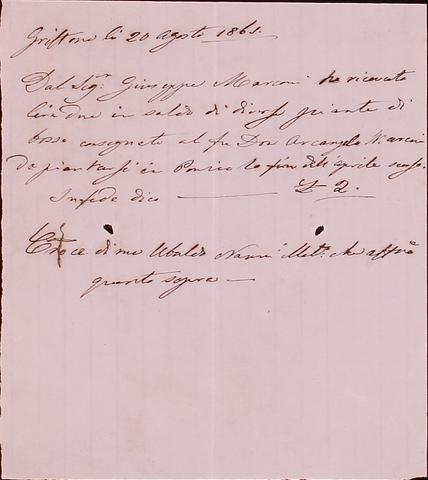 Griffone li 20 Agosto 1861.
Dal Sigr. Giuseppe Marconi ho ricevuto
lire due in saldo di diverse piante di
bosso consegnate al fu Don Arcangelo Marconi
da piantarsi in Ponzio la fin dell aprile scorso.
In fede dico — £ 2.
Croce di me Ubaldo Nanni che
quanto sopra —